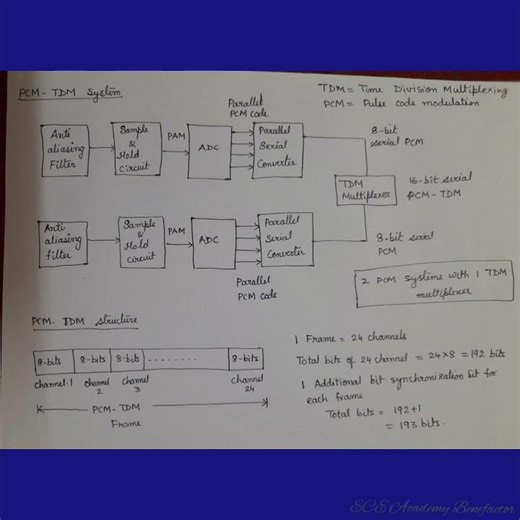 PCM - TDM System
TDM = Time Division Multiplexing
PCM = Pulse code modulation
Parallel
PCM code
Anti
aliasing
Filter
Sample
&
Hold
Circuit
PAM
ADC
Parallel
Serial
Converter
8-bit
serial PCM
TDM
Multiplexer
16-bit serial
PCM - TDM
Anti
aliasing
Filter
Sample
&
Hold
Circuit
PAM
ADC
Parallel
Serial
Converter
8-bit serial
PCM
Parallel
PCM code
2 PCM Systems with 1 TDM
multiplexer
PCM - TDM structure
8-bits 8-bits 8-bits -------- 8-bits
channel-1 channel 2 channel 3 channel 24
PCM - TDM
Frame
1 Frame = 24 channels
Total bits of 24 channel = 24×8 = 192 bits
1 Additional bit synchronization bit for
each frame
Total bits = 192+1
= 193 bits.
ECE Academy Benefactor